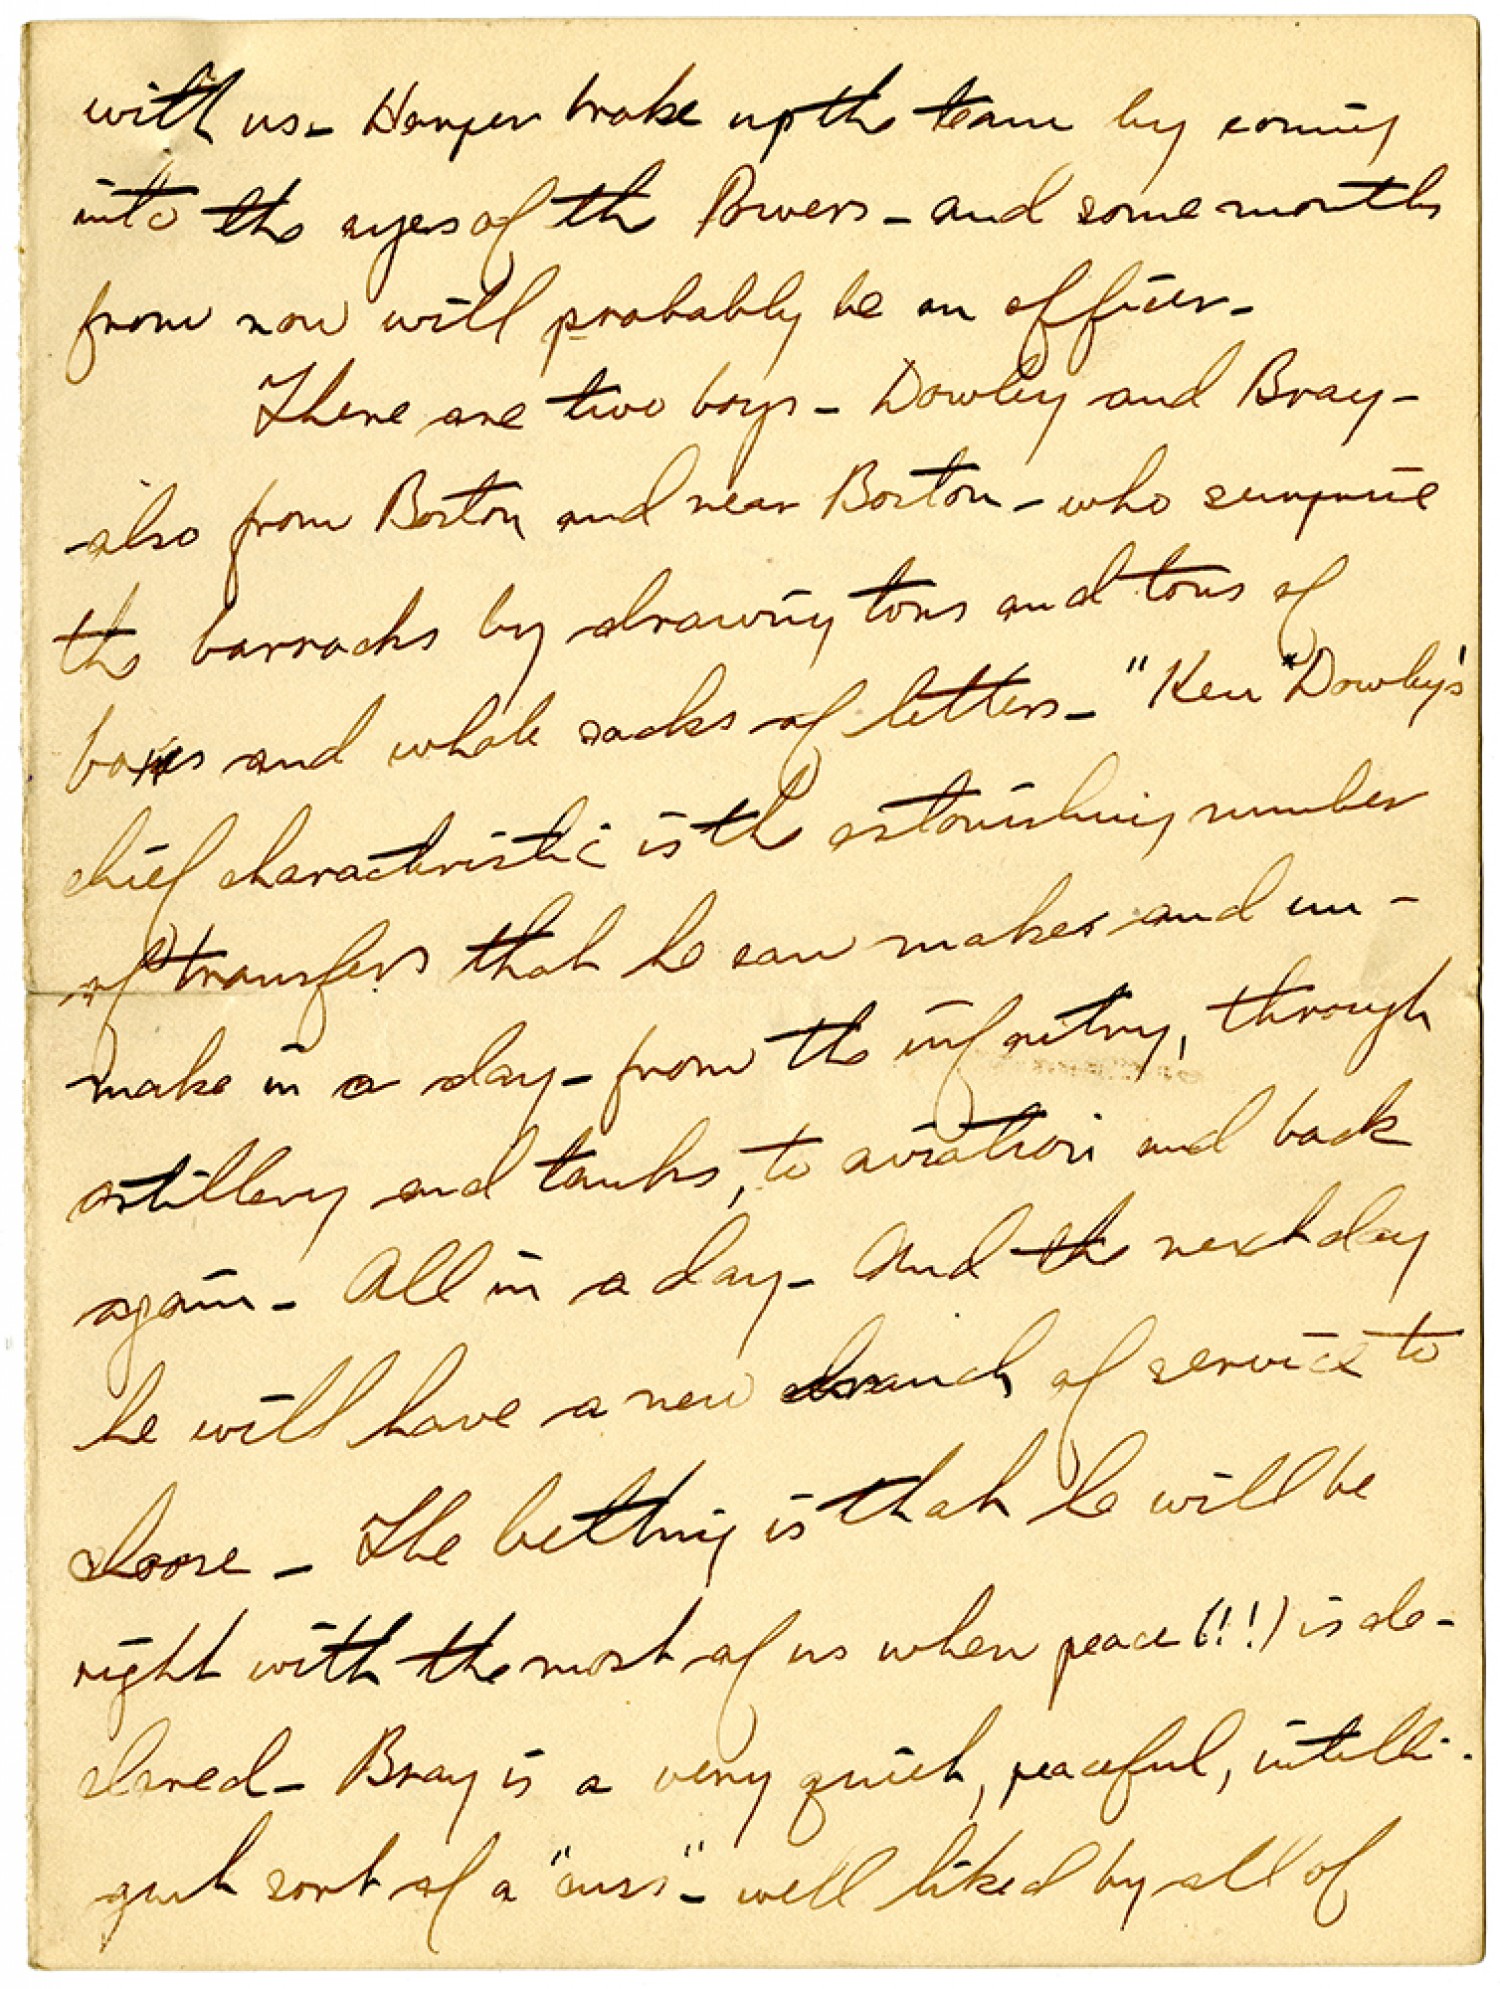 with us - Harper broke up the team by coming
into the eyes of the Powers - and some months
from now will probably be an officer -
There are two boys - Dowley and Bray -
also from Boston and near Boston - who surprise
the barracks by drawing tons and tons of
boxes and whole sacks of letters - "Ken" Dowley's
chief characteristic is the astonishing number
of transfers that he can makes and un-
make in a day - from the infantry, through
artillery and tanks, to aviation and back
again - All in a day - And the next day
he will have a new branch of service to
choose - The betting is that he will be
right with the most of us when peace (!!) is de-
clared - Bray is a very quiet, peaceful, intelli-
gent sort of a "cuss" - well liked by all of